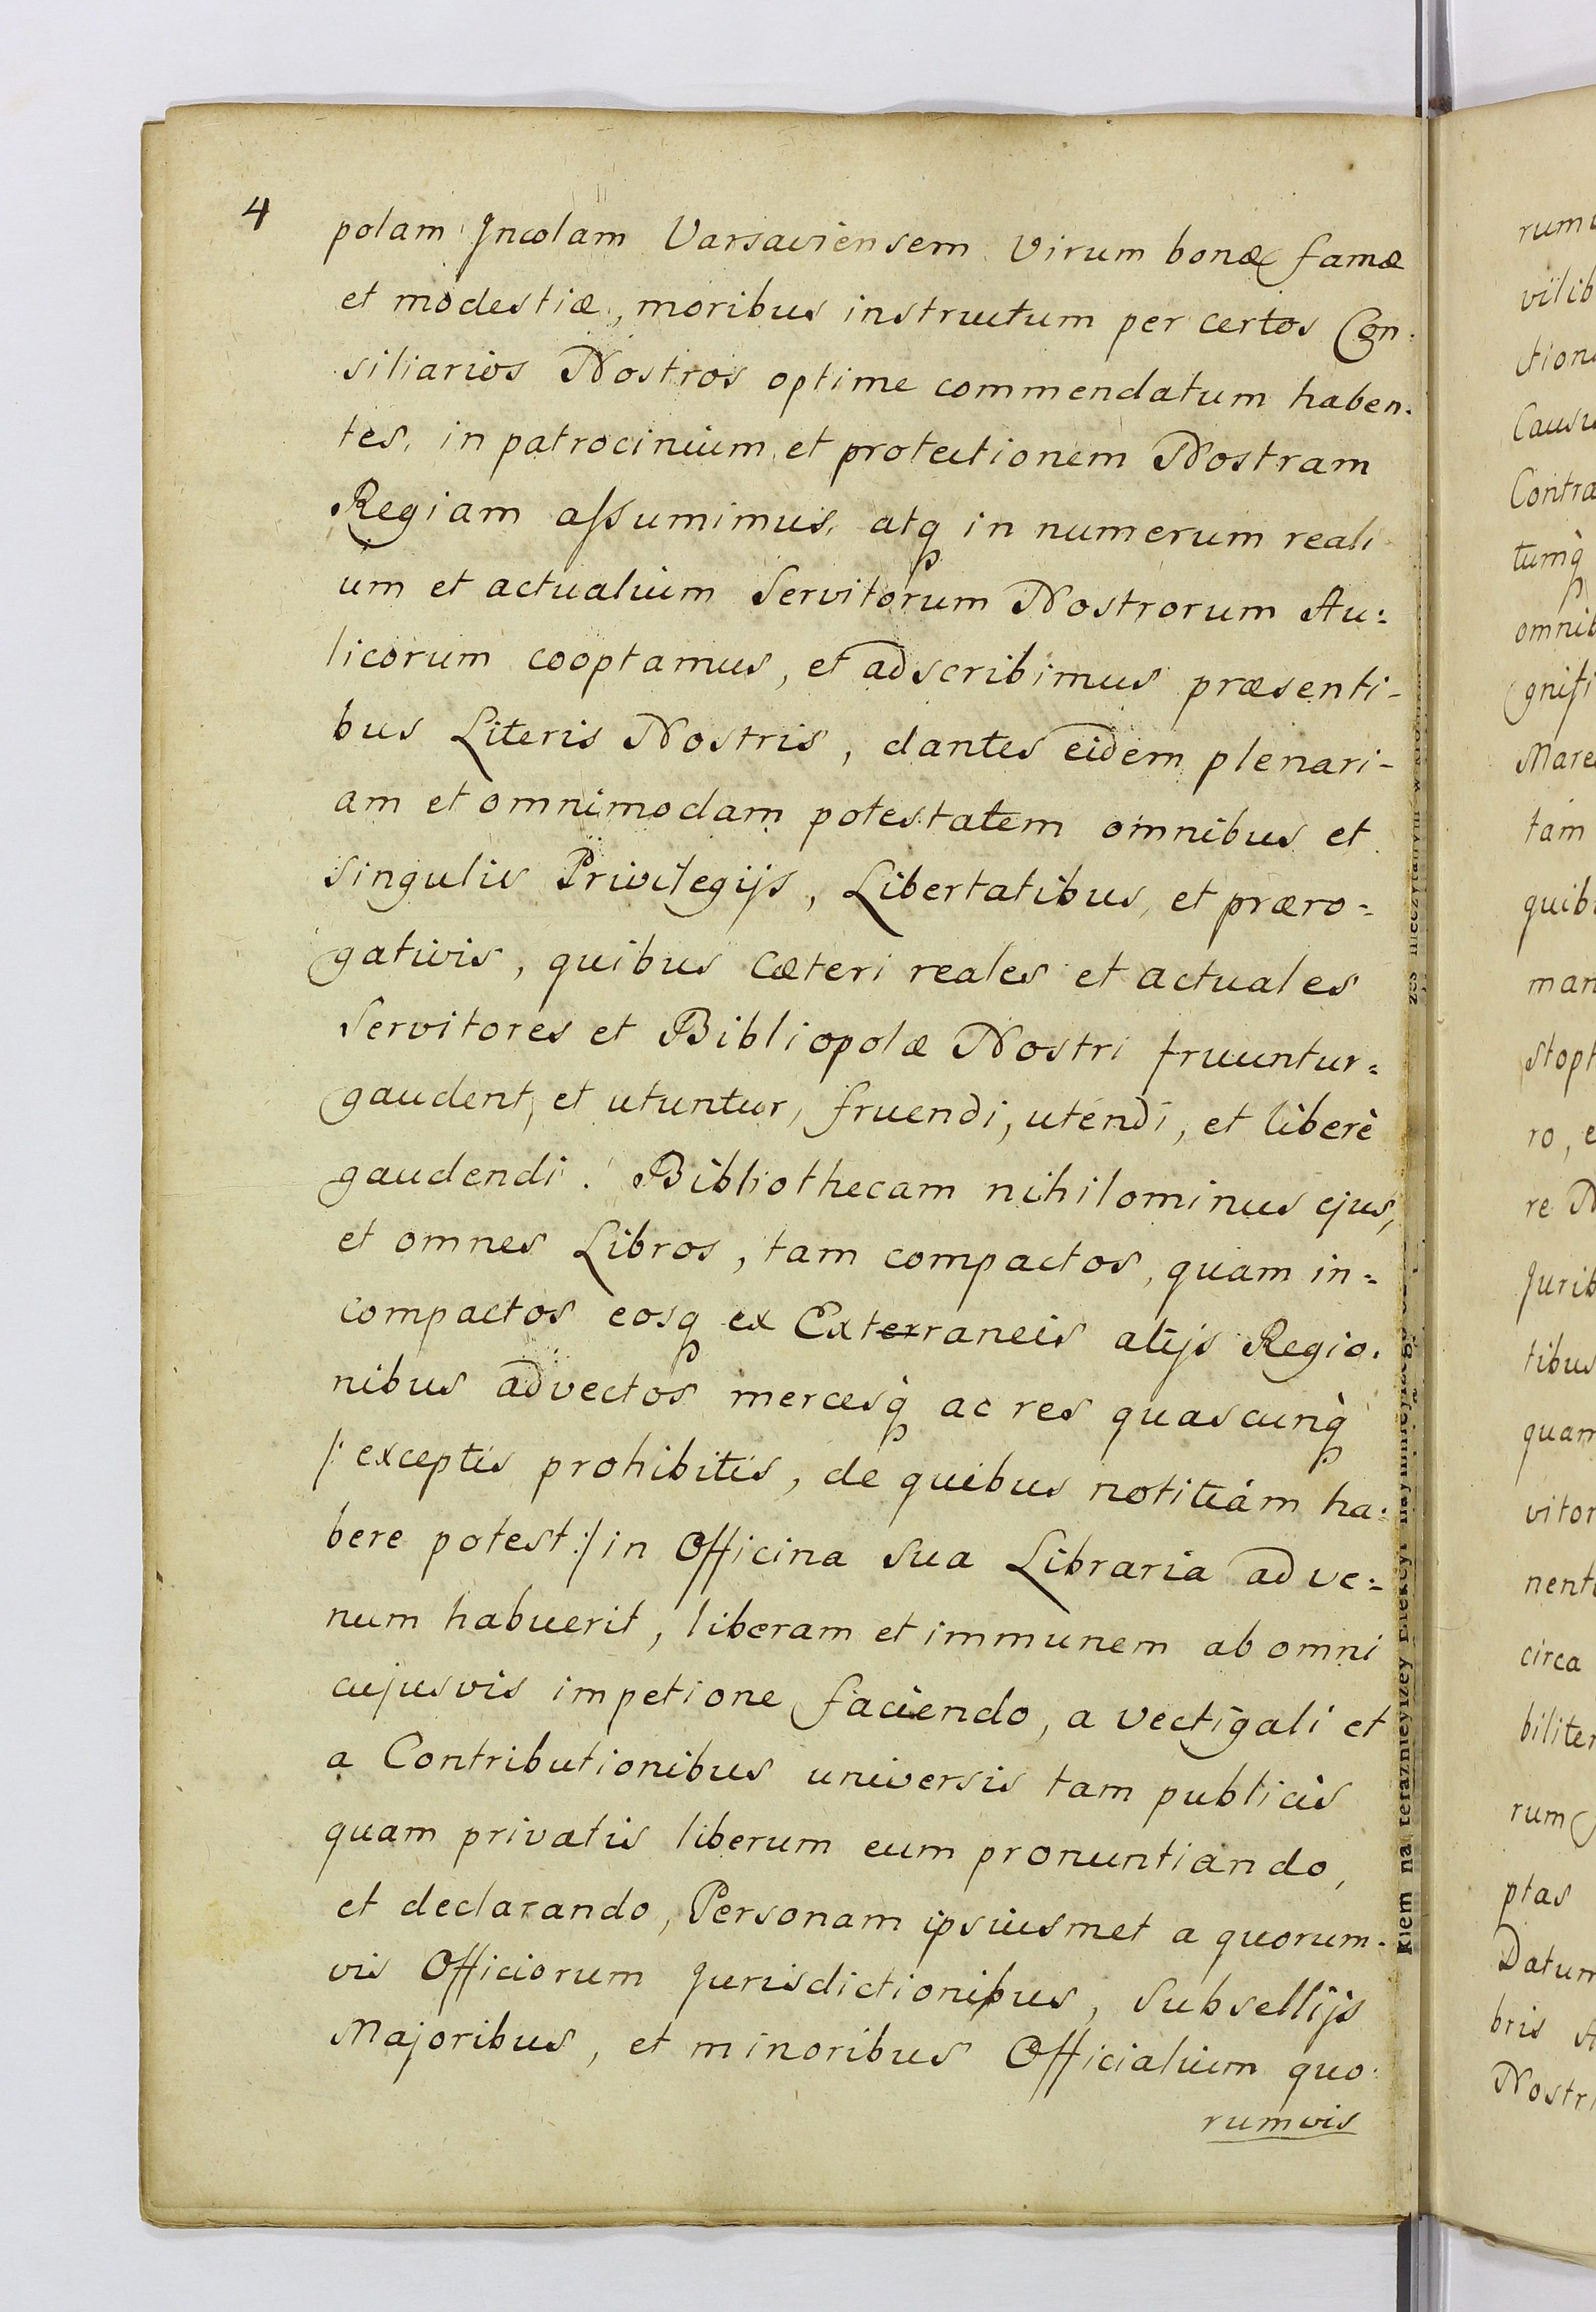 4
polam Incolam Varsaviensem Virum bonæ famæ
et modestiæ, moribus instructum per certos Con:
siliarios Nostros optime commendatum haben:
tes, in patrocinium et protectionem Nostram
Regiam assumimus, atq in numerum reali
um et actualium Servitorum Nostrorum Au:
licorum cooptamus, et adscribimus præsenti-
bus Literis Nostris, dantes eidem plenari-
am et omnimodam potestatem omnibus et
singulis Privilegijs, Libertatibus, et præro=
gativis, quibus cæteri reales et actuales
Servitores et Bibliopolæ Nostri fruuntur=
gaudent, et utuntur, fruendi, utendi, et liberè
gaudendi. Bibliothecam nihilominus ejus,
et omnes Libros, tam compactos, quam in=
compactos eosq ex Exterraneis alijs Regio.
nibus advectos mercesq̀ ac res quascunq̀
/: exceptis prohibitis, de quibus notitiam ha:
bere potest :/ in Officina sua Libraria ad ve:=
num habuerit, liberam et immunem ab omni
cujusvis impetione faciendo, a vectigali et
a Contributionibus universis tam publicis
quam privatis liberum eum pronuntiando,
et declarando, Personam ipsiusmet a quorum-
vis Officiorum Jurisdictionibus, Subsellijs
Majoribus, et minoribus Officialium quo:
rumvis
rum
vilib
ction
Causu
Contra
tumq̀
omnib
gnifi
Mare
tam
quib
man
stopt
ro, e
re N
Jurib
tibus
quam
vitor
nent
circa
biliter
rum
ptas
Datum
bris
Nostr
kiem na teraznieyszey Elekcyi